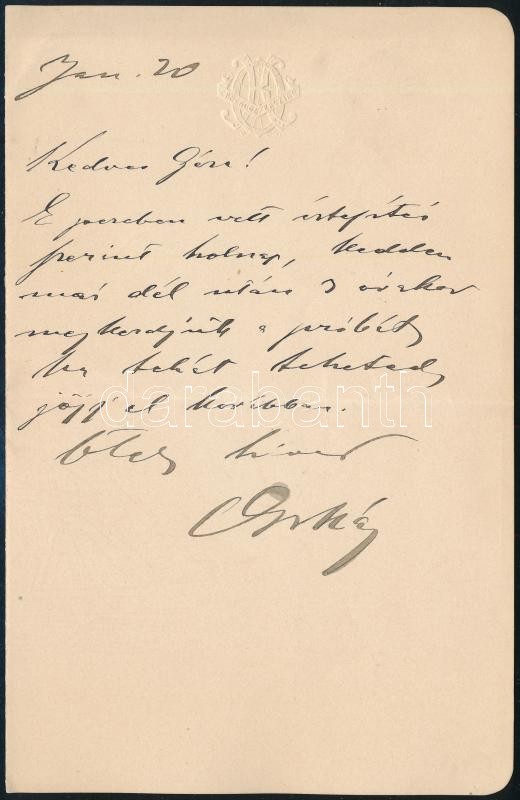 Jan. 20
Kedves Géza!
E percben vett értesítés
szerint holnap, kedden
már dél után 3 órakor
megkezdjük a próbát,
ha tehát teheted,
jöjj el korábban.
darabanth
Ölel híved